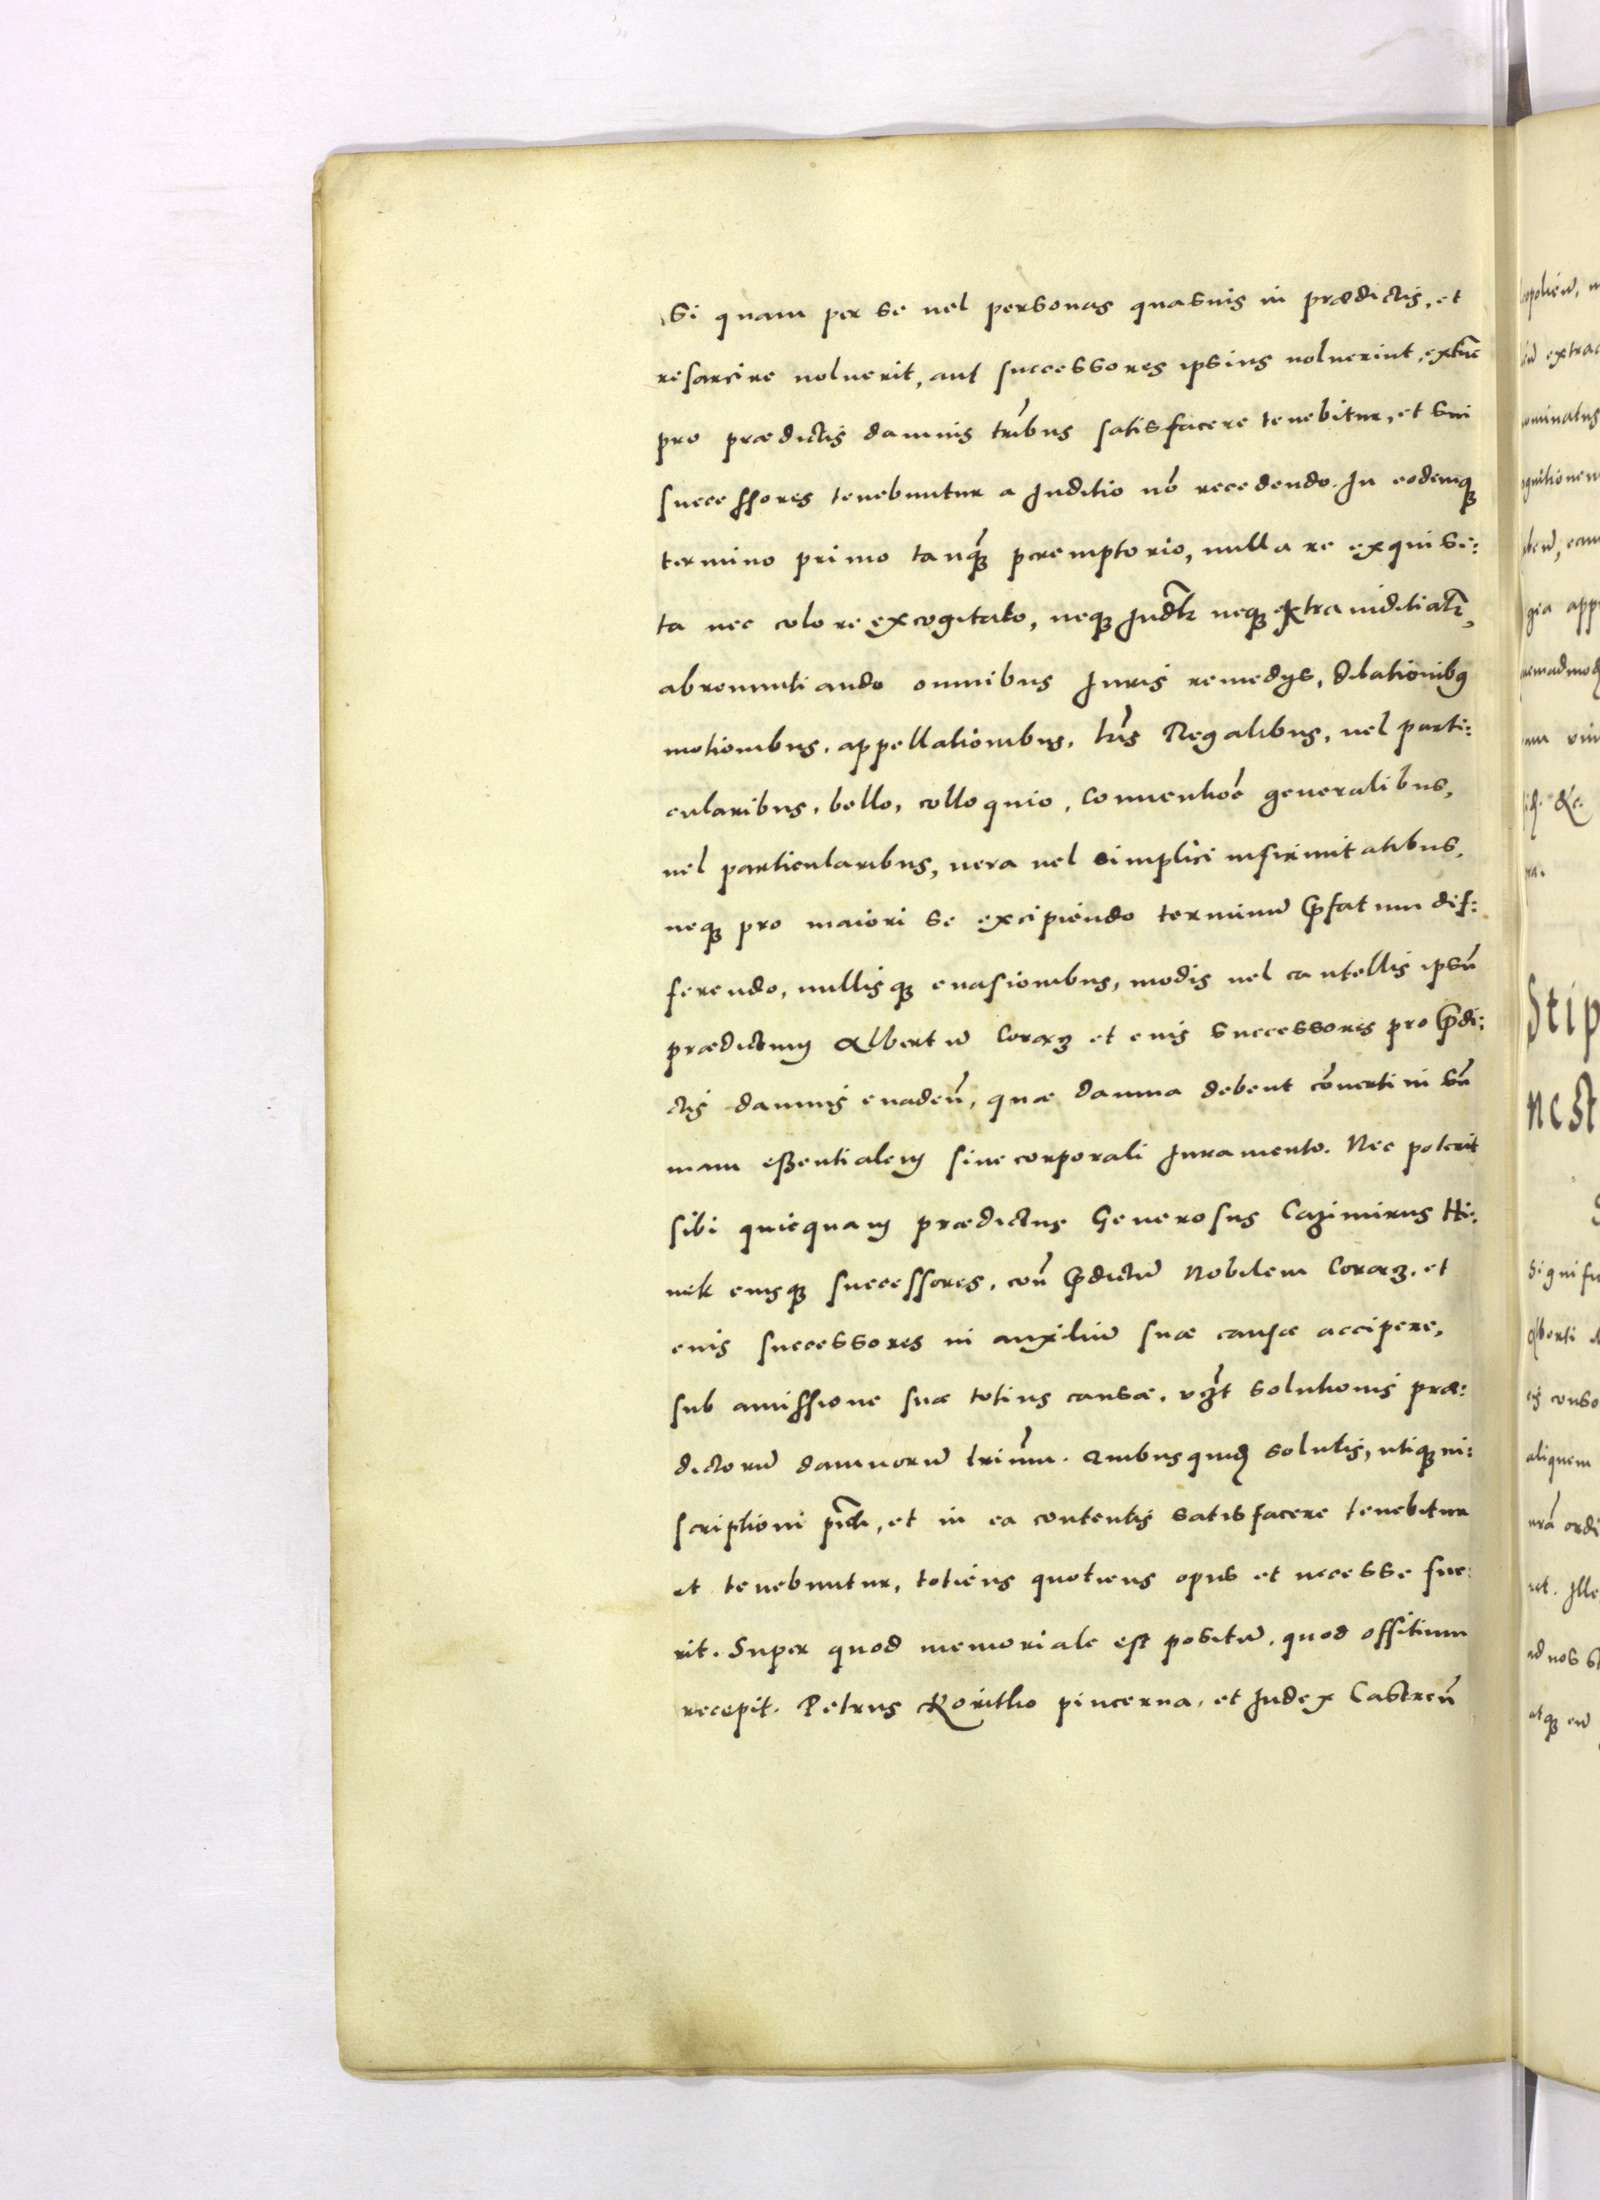 Si quam per se uel personas quasuis in prædictis, et
resarcire noluerit, aut successores ipsius noluerint, extũc
pro prædictis damnis tribus satisfacere tenebitur, et sui
successores tenebuntur a Juditio nõ recedendo. In eodemq;
termino primo tanq̃ peremptorio, nulla re exquisi:
ta nec colore excogitato, neq; Judr̃ neq; extraiuditialr̃,
abrenuntiando omnibus Juris remedijs, dilationibus
motionibus, appellationibus, lr̃is Regalibus, uel parti:
cularibus, bello, colloquio, Conuentioẽ generalibus,
uel particularibus, uera uel simplici infirmitatibus,
neq; pro maiori se excipiendo terminũ p̃fatum dif:
ferendo, nullisq; euasionibus, modis uel cautellis ipsũ
prædictum Albertũ Coraz et eius successores pro p̃di:
ctis damnis euadeñ, quæ damna debent cõuerti in sũ
mam essentialem sine corporali Juramento. Nec poterit
sibi quicquam prædictus Generosus Cazimirus Hi:
nek eiusq; successores, coñ p̃dictũ Nobilem Coraz, et
eius successores in auxiliũ suæ causæ accipere,
sub amissione suæ totius causæ, vz̃t solutionis præ:
dictorũ damnorũ trinum. Quibusquidẽ solutis, utiq; in:
scriptioni p̃icti, et in ea contentis satisfacere tenebitur
et tenebuntur, totiens quotiens opus et necesse fue:
rit. Super quod memoriale est positũ, quod offitium
recepit. Petrus Koritho pincerna, et Judex Castreñ
Stip
nest